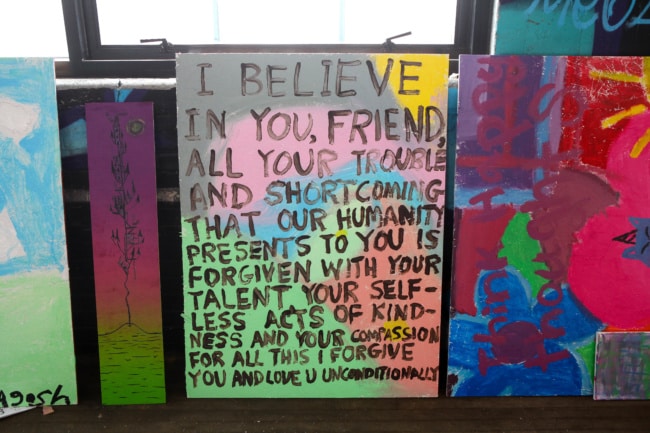 I BELIEVE
IN YOU, FRIEND,
ALL YOUR TROUBLE
AND SHORTCOMING
THAT OUR HUMANITY
PRESENTS TO YOU IS
FORGIVEN WITH YOUR
TALENT YOUR SELF-
LESS ACTS OF KIND-
NESS AND YOUR COMPASSION
FOR ALL THIS I FORGIVE
YOU AND LOVE U UNCONDITIONALLY
Think Happy
Thoughts